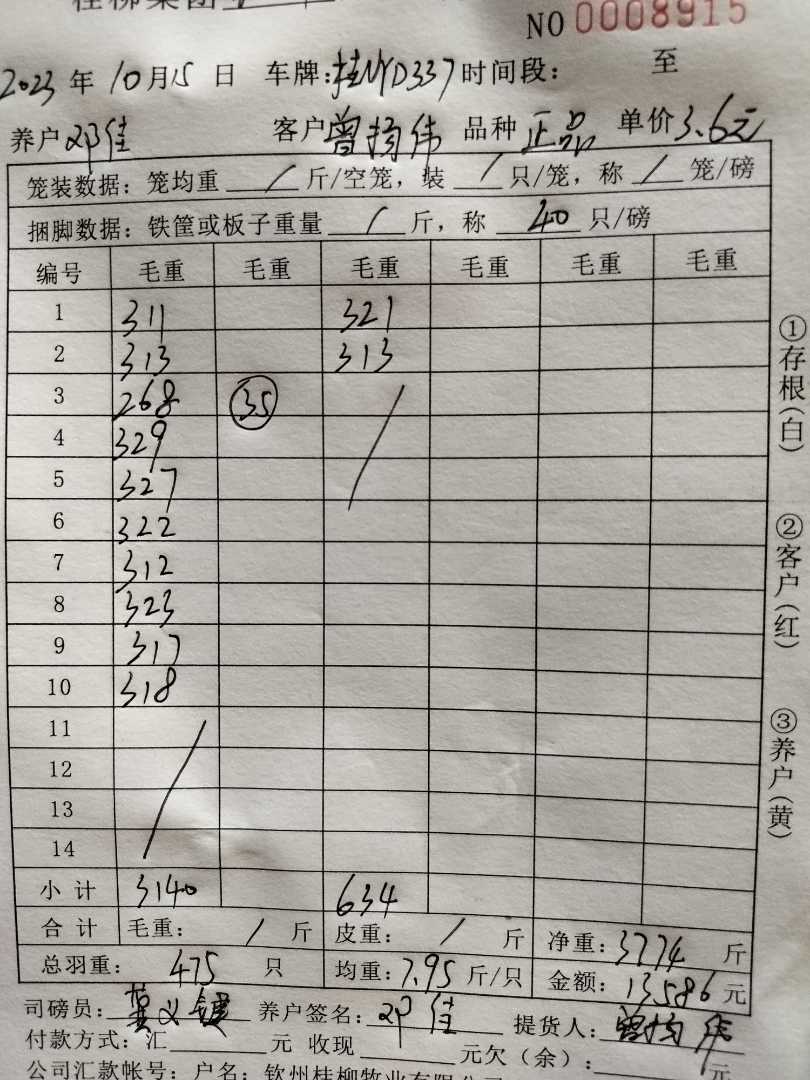 桂柳集团
NO 0008915
2023 年 10 月 15 日 车牌: 桂NYD337 时间段: 至
养户 邓佳 客户 曾扬伟 品种 正品 单价 3.6元
笼装数据: 笼均重 / 斤/空笼, 装 / 只/笼, 称 / 笼/磅
捆脚数据: 铁筐或板子重量 / 斤, 称 40 只/磅
编号 毛重 毛重 毛重 毛重 毛重 毛重
1 311 321
2 313 313
3 268 35
4 329
5 327
6 322
7 312
8 323
9 317
10 318
11
12
13
14
小 计 3140 634
合 计 毛重: / 斤 皮重: / 斤 净重: 3774 斤
总羽重: 475 只 均重: 7.95 斤/只 金额: 13586 元
司磅员: 义键 养户签名: 邓佳 提货人: 曾扬伟
付款方式: 汇 元 收现 元欠(余): 元
公司汇款帐号: 户名: 钦州桂柳牧业有限公司
①存根(白)
②客户(红)
③养户(黄)